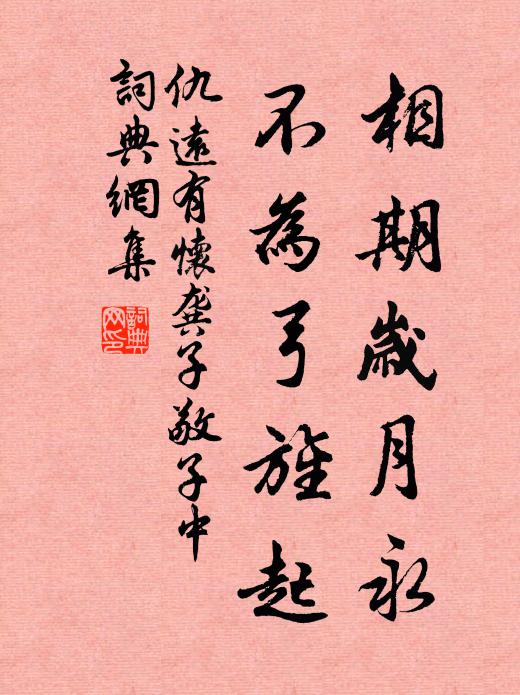 相期歲月永
不為弓旌起
仇遠有懷龔子敬子中
詞典網集
詞典
网印